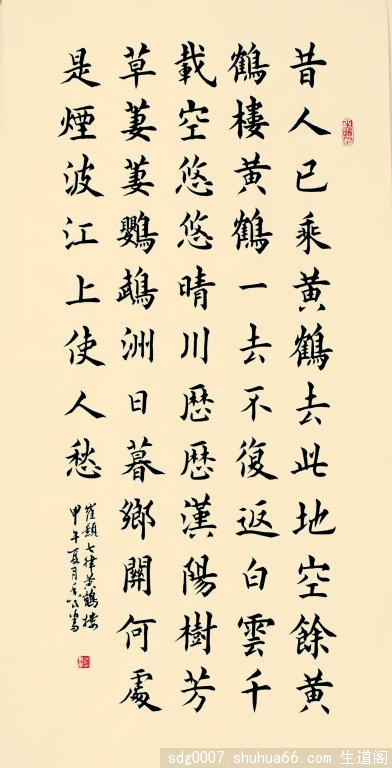 昔人已乘黄鶴去此地空餘黄
鶴樓黄鶴一去不復返白雲千
載空悠悠晴川歷歷漢陽樹芳
草萋萋鸚鵡洲日暮鄉關何處
是煙波江上使人愁
崔顥七律黄鶴樓
甲午夏月
sdg0007.shuhua66.com 生道阁